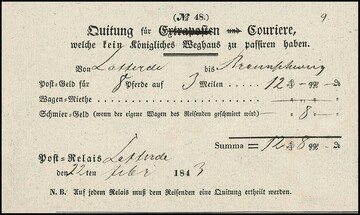 (№ 48.) 9
Quitung für Extraposten und Couriere,
welche kein Königliches Weghaus zu passiren haben.
Von Lafferde bis Braunschweig
Post-Geld für 8 Pferde auf 3 Meilen 12
Wagen-Miethe
Schmier-Geld (wenn der eigene Wagen des Reisenden geschmiert wird) 8
Summa = 12 8
Post-Relais Lafferde
den 22ten 1843
N. B. Auf jedem Relais muß dem Reisenden eine Quitung ertheilt werden.